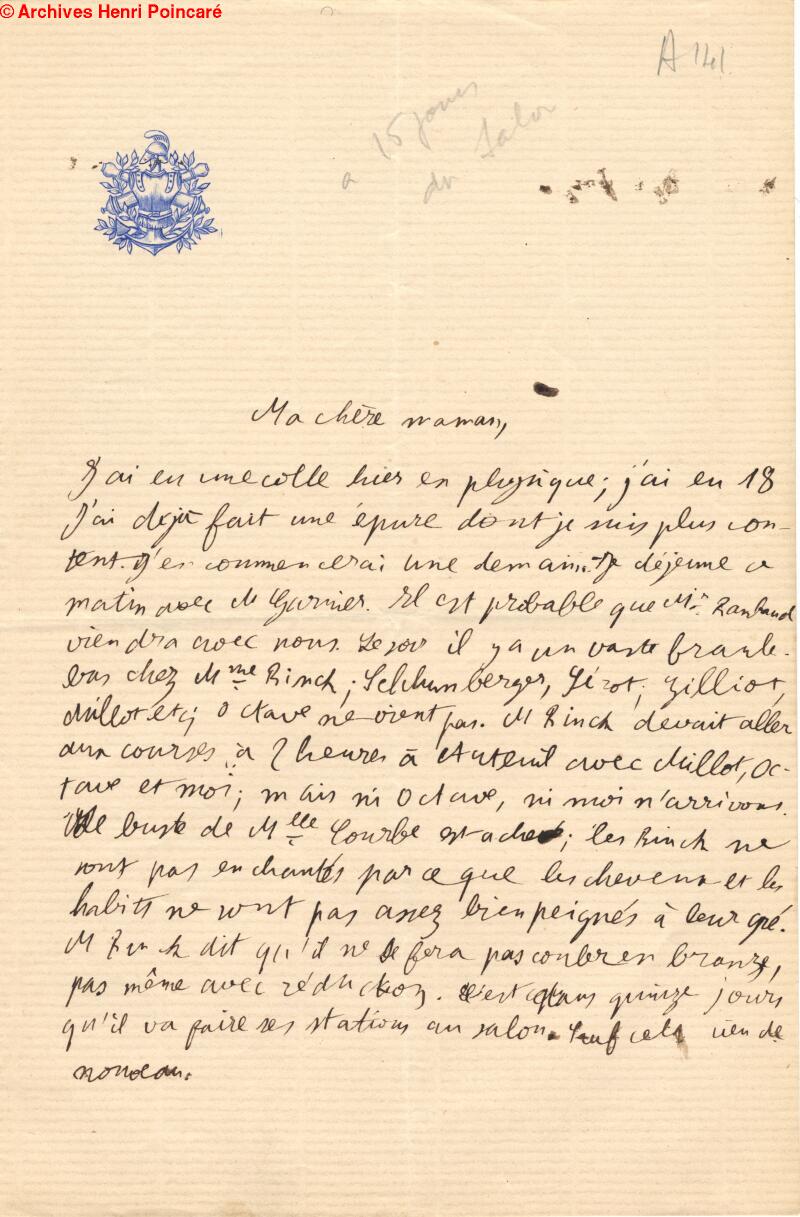 © Archives Henri Poincaré
A 141
a 15 jours
du Salon
Ma chère maman,
J'ai eu une colle hier en physique; j'ai eu 18
J'ai déjà fait une épure dont je suis plus con-
tent. J'en commencerai une demain. Je déjeune ce
matin avec M Garnier. Il est probable que Mr Rambaud
viendra avec nous. Le soir il y a un vaste branle-
bas chez Mme Rinck; Schlumberger, Gilliot,
Millot etc; Octave ne vient pas. M Rinck devait aller
aux courses à 2 heures à Auteuil avec Millot, Oc-
tave et moi; mais ni Octave, ni moi n'arrivons.
Le buste de Mlle Courbe est achevé; les Rinck ne
sont pas enchantés parce que les cheveux et les
habits ne sont pas assez bien peignés à leur gré.
M Rinck dit qu'il ne le fera pas couler en bronze,
pas même avec réduction. C'est dans quinze jours
qu'il va faire ses stations au salon. Sauf cela rien de
nouveau.